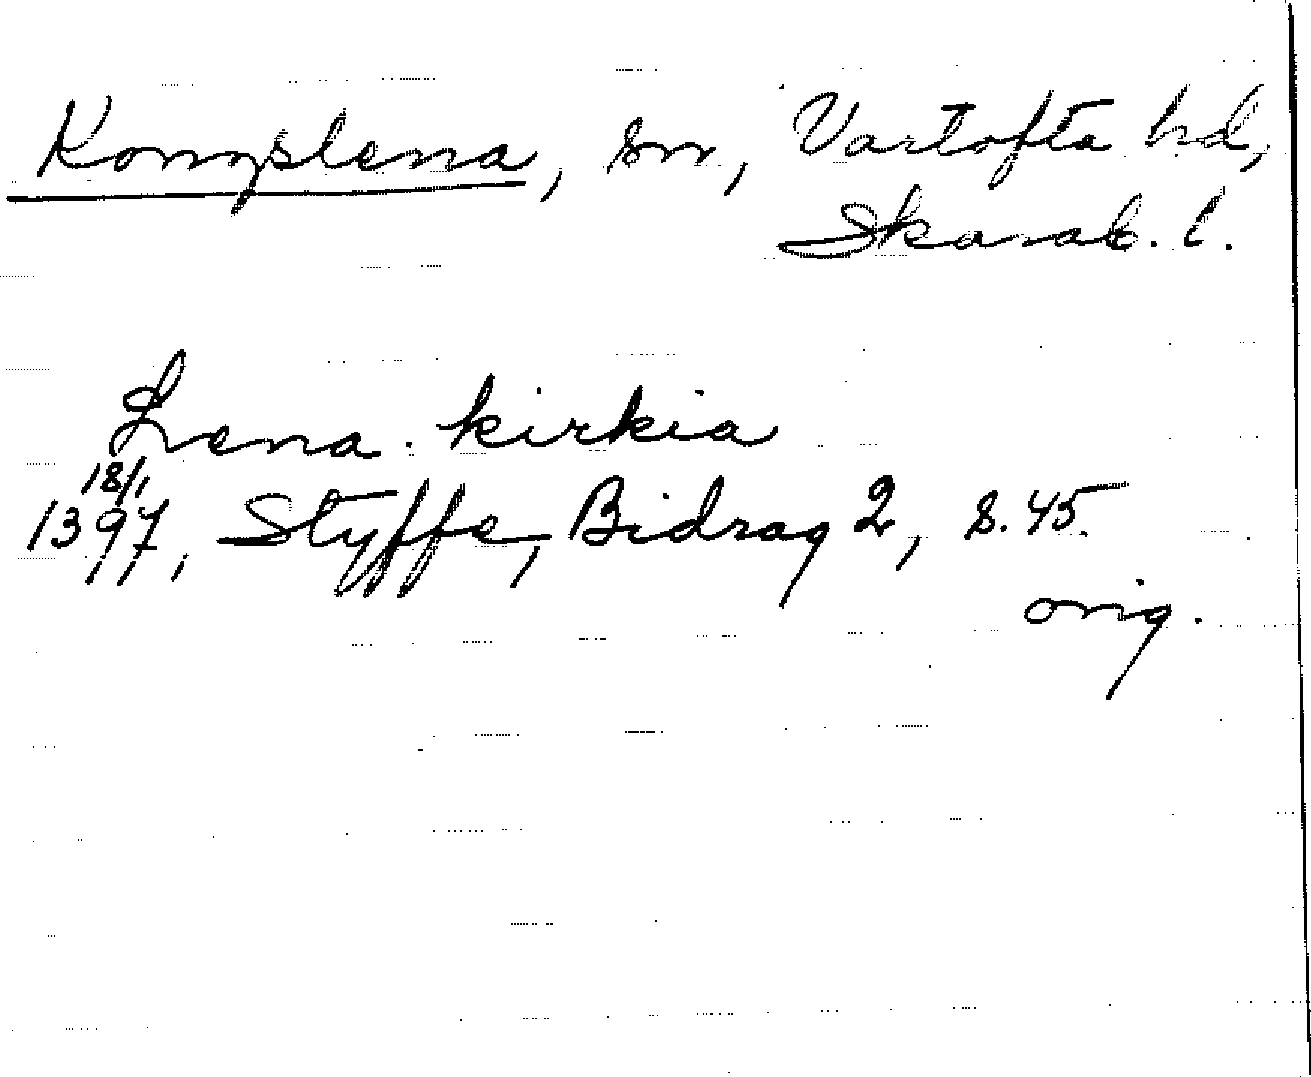 Kongslena, sn, Vartofta hd,
Skarab. l.
Lena. kirkia
18/1
1397, Styffe, Bidrag 2, s. 45.
orig.